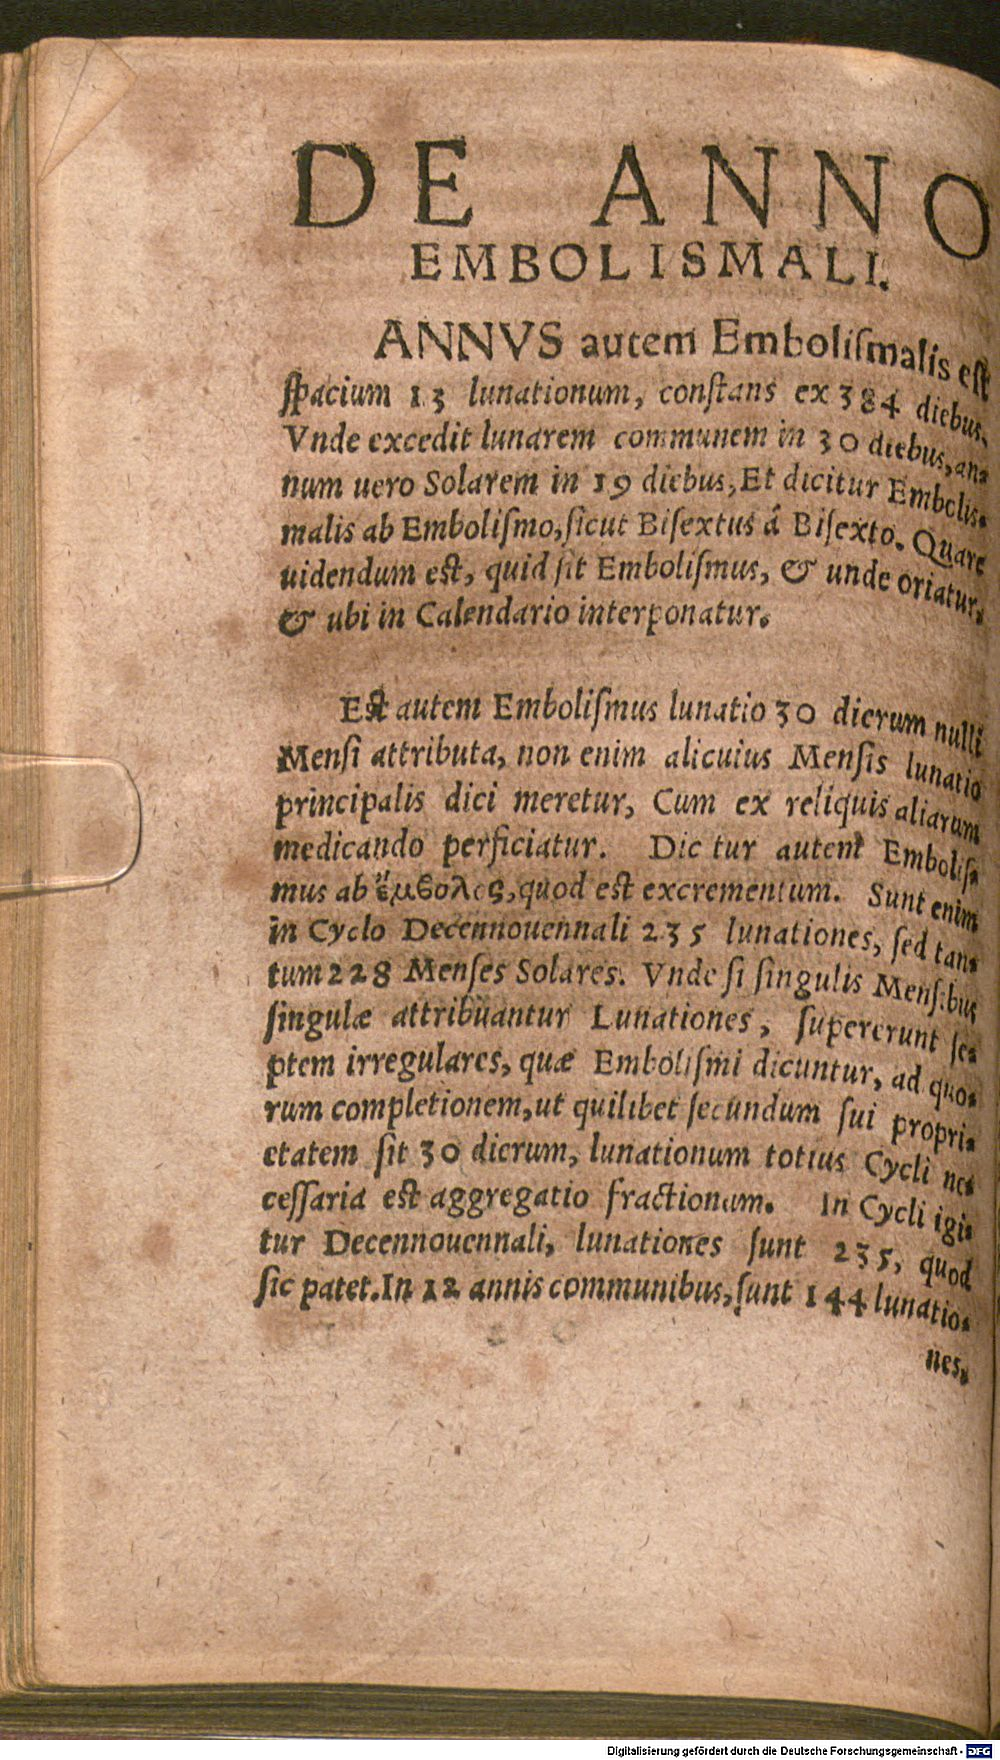 DE ANNO
EMBOLISMALI.
ANNVS autem Emboliſmalis eſt
ſpacium 13 lunationum, conſtans ex 384 diebus.
Vnde excedit lunarem communem in 30 diebus, an⸗
num uero Solarem in 19 diebus, Et dicitur Embolis⸗
malis ab Emboliſmo, ſicut Biſextus á Biſexto. Quare
uidendum eſt, quid ſit Emboliſmus, & unde oriatur,
& ubi in Calendario interponatur.
Eſt autem Emboliſmus lunatio 30 dierum nulli
Menſi attributa, non enim alicuius Menſis lunatio
principalis dici meretur, Cum ex reliquis aliarum
medicando perficiatur. Dic tur autem Emboliſ⸗
mus ab ἔμβολος, quod eſt excrementum. Sunt enim
in Cyclo Decennouennali 235 lunationes, ſed tan⸗
tum 228 Menſes Solares. Vnde ſi ſingulis Menſibus
ſingulæ attribuantur Lunationes, ſupererunt ſe⸗
ptem irregulares, quæ Emboliſmi dicuntur, ad quo⸗
rum completionem, ut quilibet ſecundum ſui propri⸗
etatem ſit 30 dierum, lunationum totius Cycli ne⸗
ceſſaria eſt aggregatio fractionum. In Cycli igi⸗
tur Decennouennali, lunationes ſunt 235, quod
ſic patet. In 12 annis communibus, ſunt 144 lunatio⸗
nes,
Digitalisierung gefördert durch die Deutsche Forschungsgemeinschaft - DFG